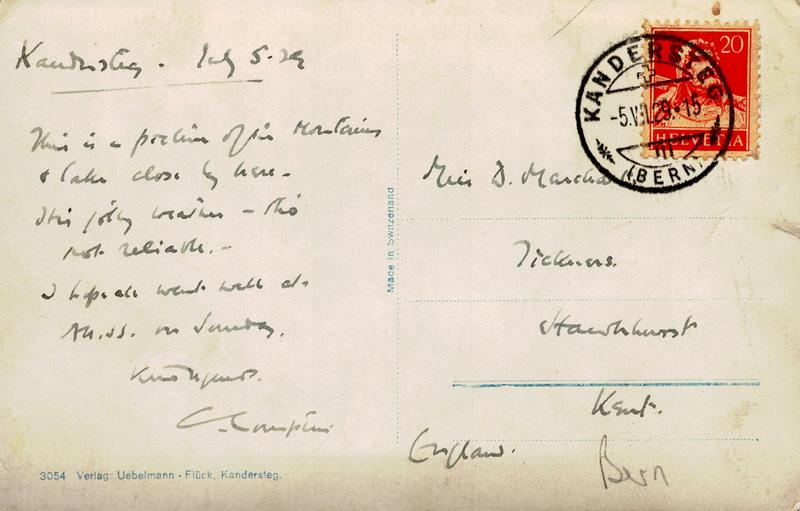 Kandersteg. July 5. 29
This is a picture of the Mountains
& Lake close by here -
It is jolly weather - tho'
not reliable. -
I hope all went well at
on Sunday.
Kind regards.
C.
3054 Verlag: Uebelmann - Flück, Kandersteg.
Made in Switzerland
20
HELVETIA
KANDERSTEG
-5.VII.29.-15
III
(BERN)
Miss D. Marcha
Tickners.
Hawkhurst
Kent.
England.
Bern